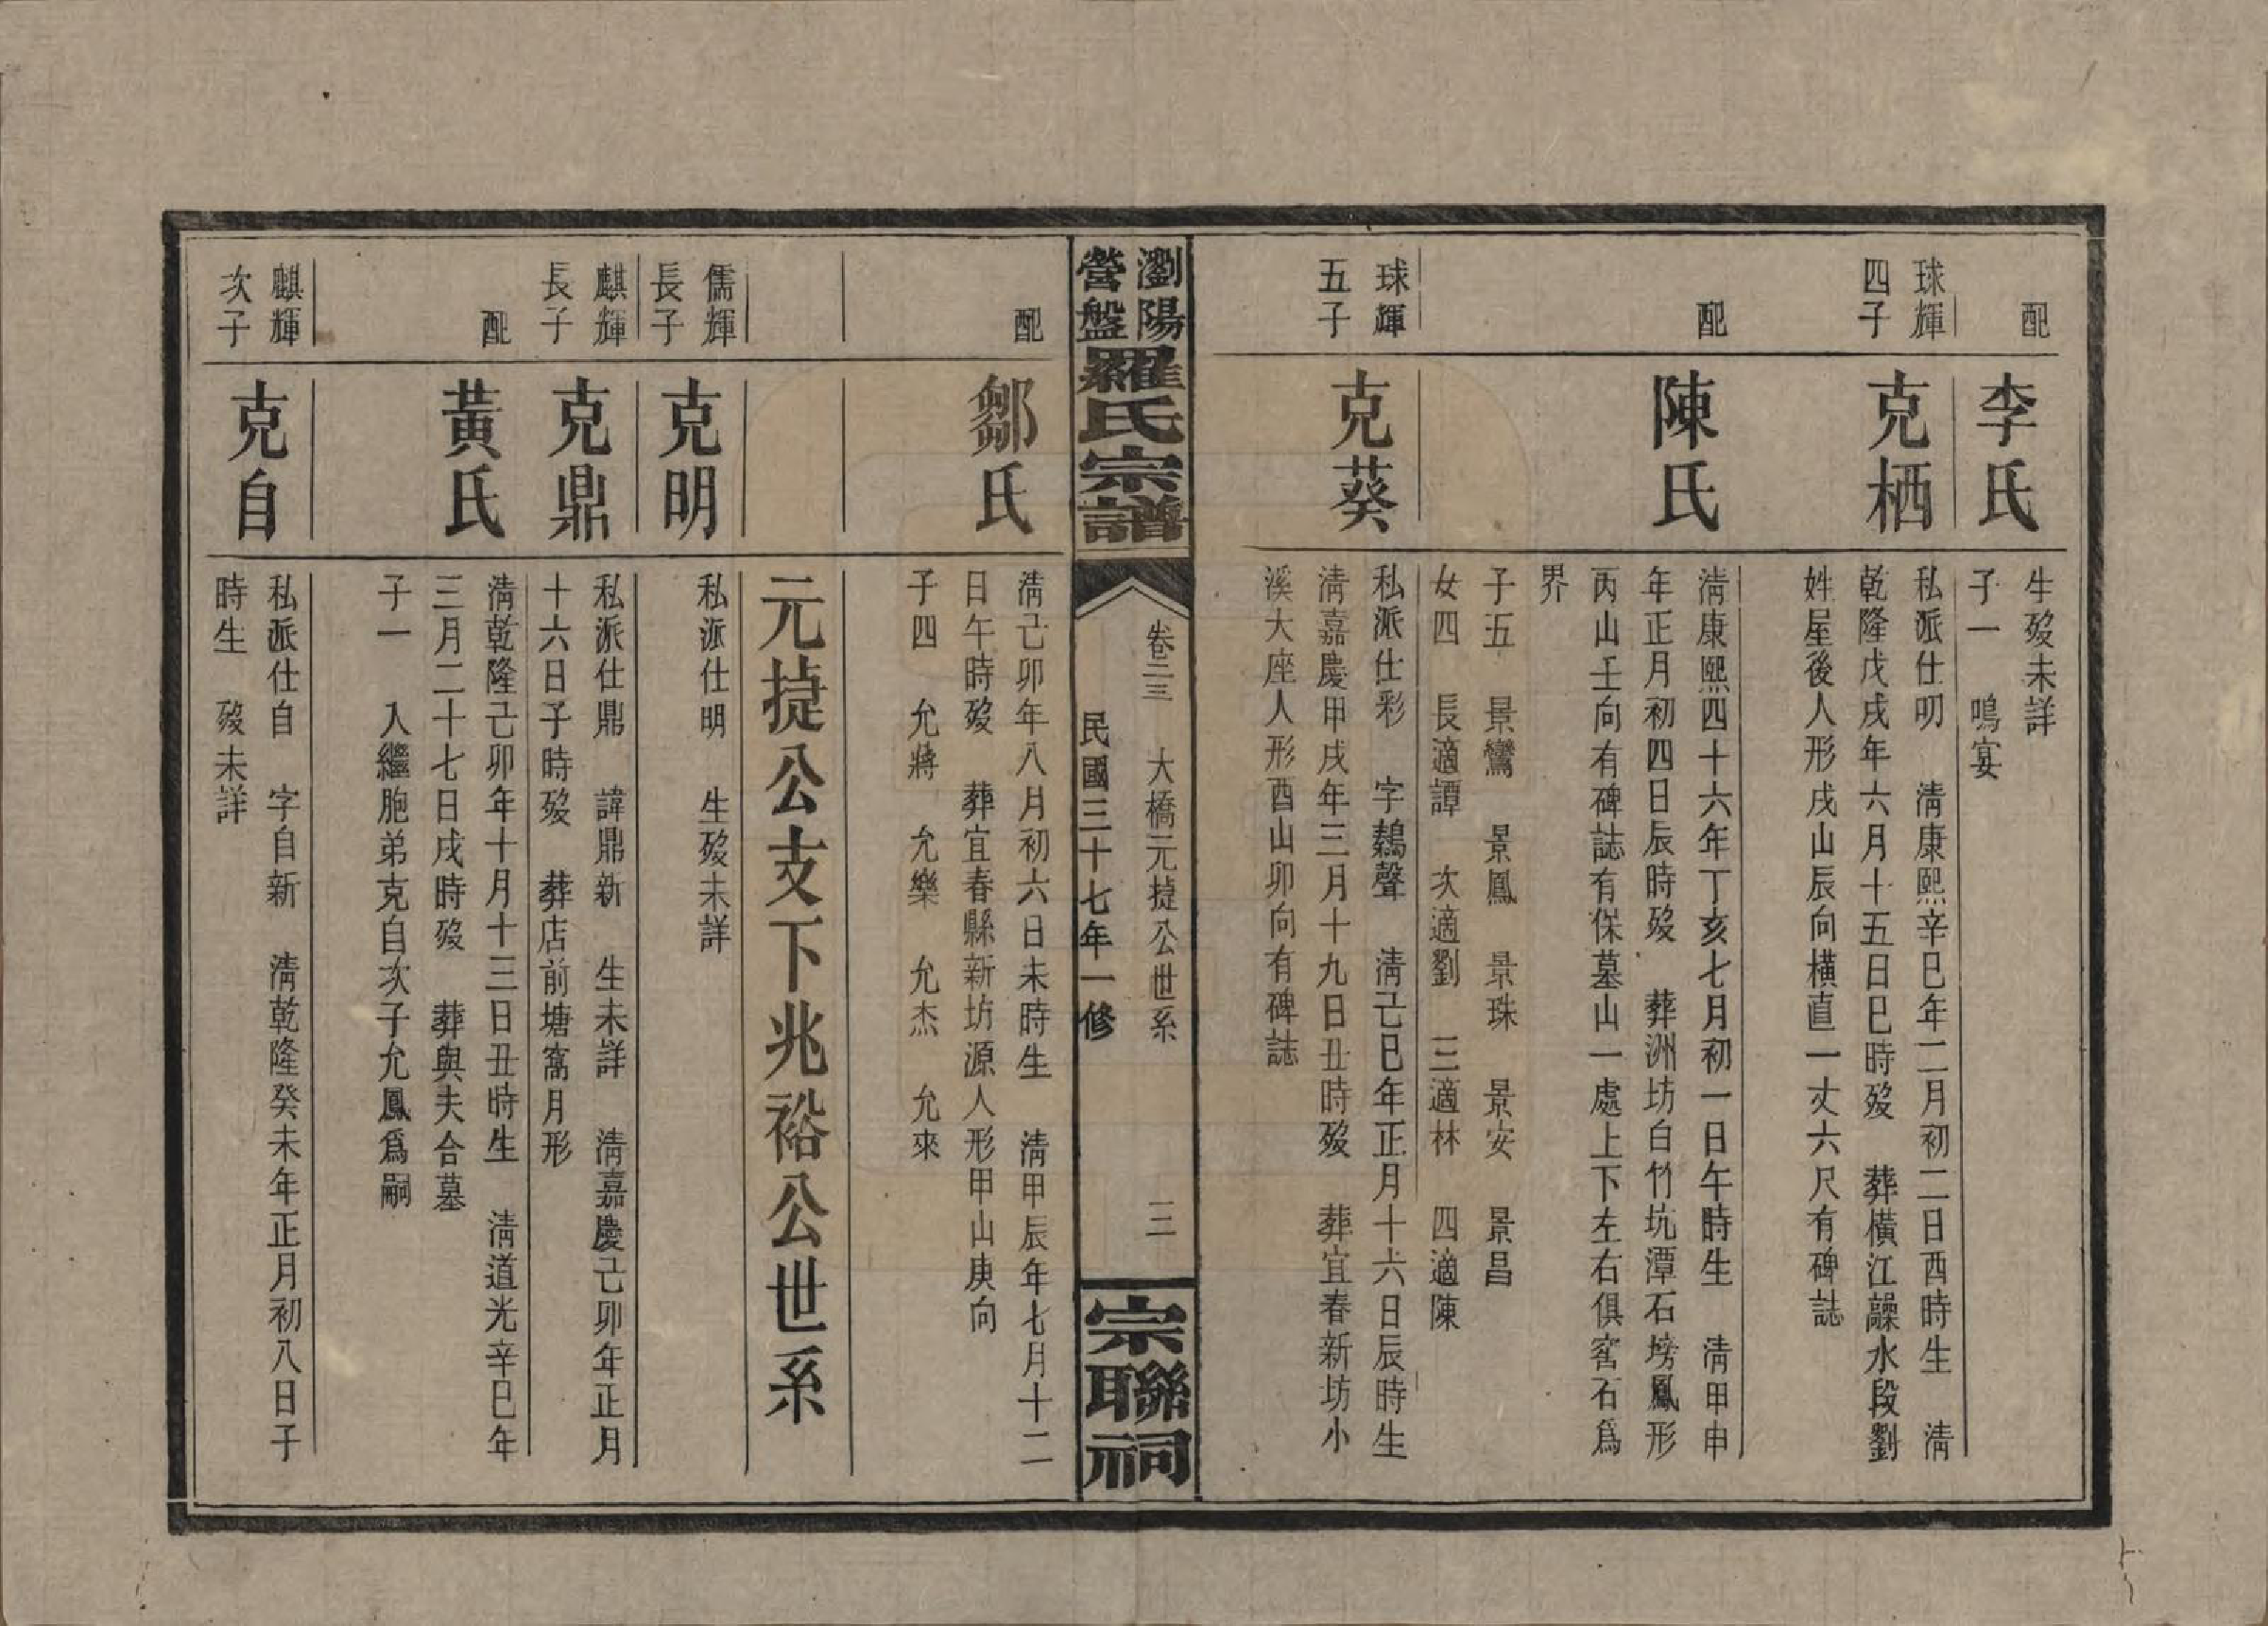 配
李氏
生歿未詳
子一　鳴宴
球輝
四子
克栖
私派仕明　清康熙辛巳年二月初二日酉時生　清
乾隆戊戌年六月十五日巳時歿　葬橫江藻水段劉
姓屋後人形戌山辰向橫直一丈六尺有碑誌
配
陳氏
清康熙四十六年丁亥七月初一日午時生　清甲申
年正月初四日辰時歿　葬洲坊白竹坑潭石塝鳳形
丙山壬向有碑誌有保墓山一處上下左右俱窖石爲
界
子五　景鸞　景鳳　景珠　景安　景昌
女四　長適譚　次適劉　三適林　四適陳
球輝
五子
克葵
私派仕彩　字鷯聲　清己巳年正月十六日辰時生
清嘉慶甲戌年三月十九日丑時歿　葬宜春新坊小
溪大座人形酉山卯向有碑誌
瀏陽
營盤
羅氏宗譜
卷二三　大橋元捷公世系　三
民國三十七年一修
宗聯祠
配
鄒氏
清己卯年八月初六日未時生　清甲辰年七月十二
日午時歿　葬宜春縣新坊源人形甲山庚向
子四　允蔣　允樂　允杰　允來
元捷公支下兆裕公世系
儒輝
長子
克明
私派仕明　生歿未詳
麒輝
長子
克鼎
私派仕鼎　諱鼎新　生未詳　清嘉慶己卯年正月
十六日子時歿　葬店前塘窩月形
配
黃氏
清乾隆己卯年十月十三日丑時生　清道光辛巳年
三月二十七日戌時歿　葬與夫合墓
子一　入繼胞弟克自次子允鳳爲嗣
麒輝
次子
克自
私派仕自　字自新　清乾隆癸未年正月初八日子
時生　歿未詳